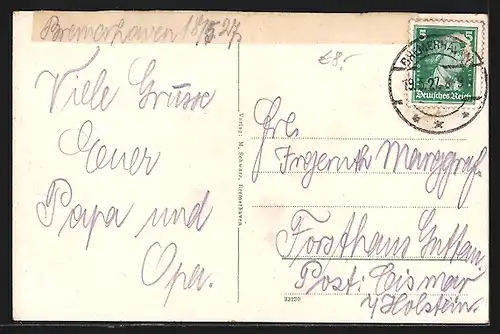 Bremerhaven 18/5 27
€8.-
Viele Grüsse
Euer
Papa und
Opa.
Verlag: M. Schwarz, Bremerhaven
5 5
Deutsches Reich
BREMERHAVEN
19.5.27
Frl.
Marggraf
Forsthaus
Post: Cismar
i/Holstein.